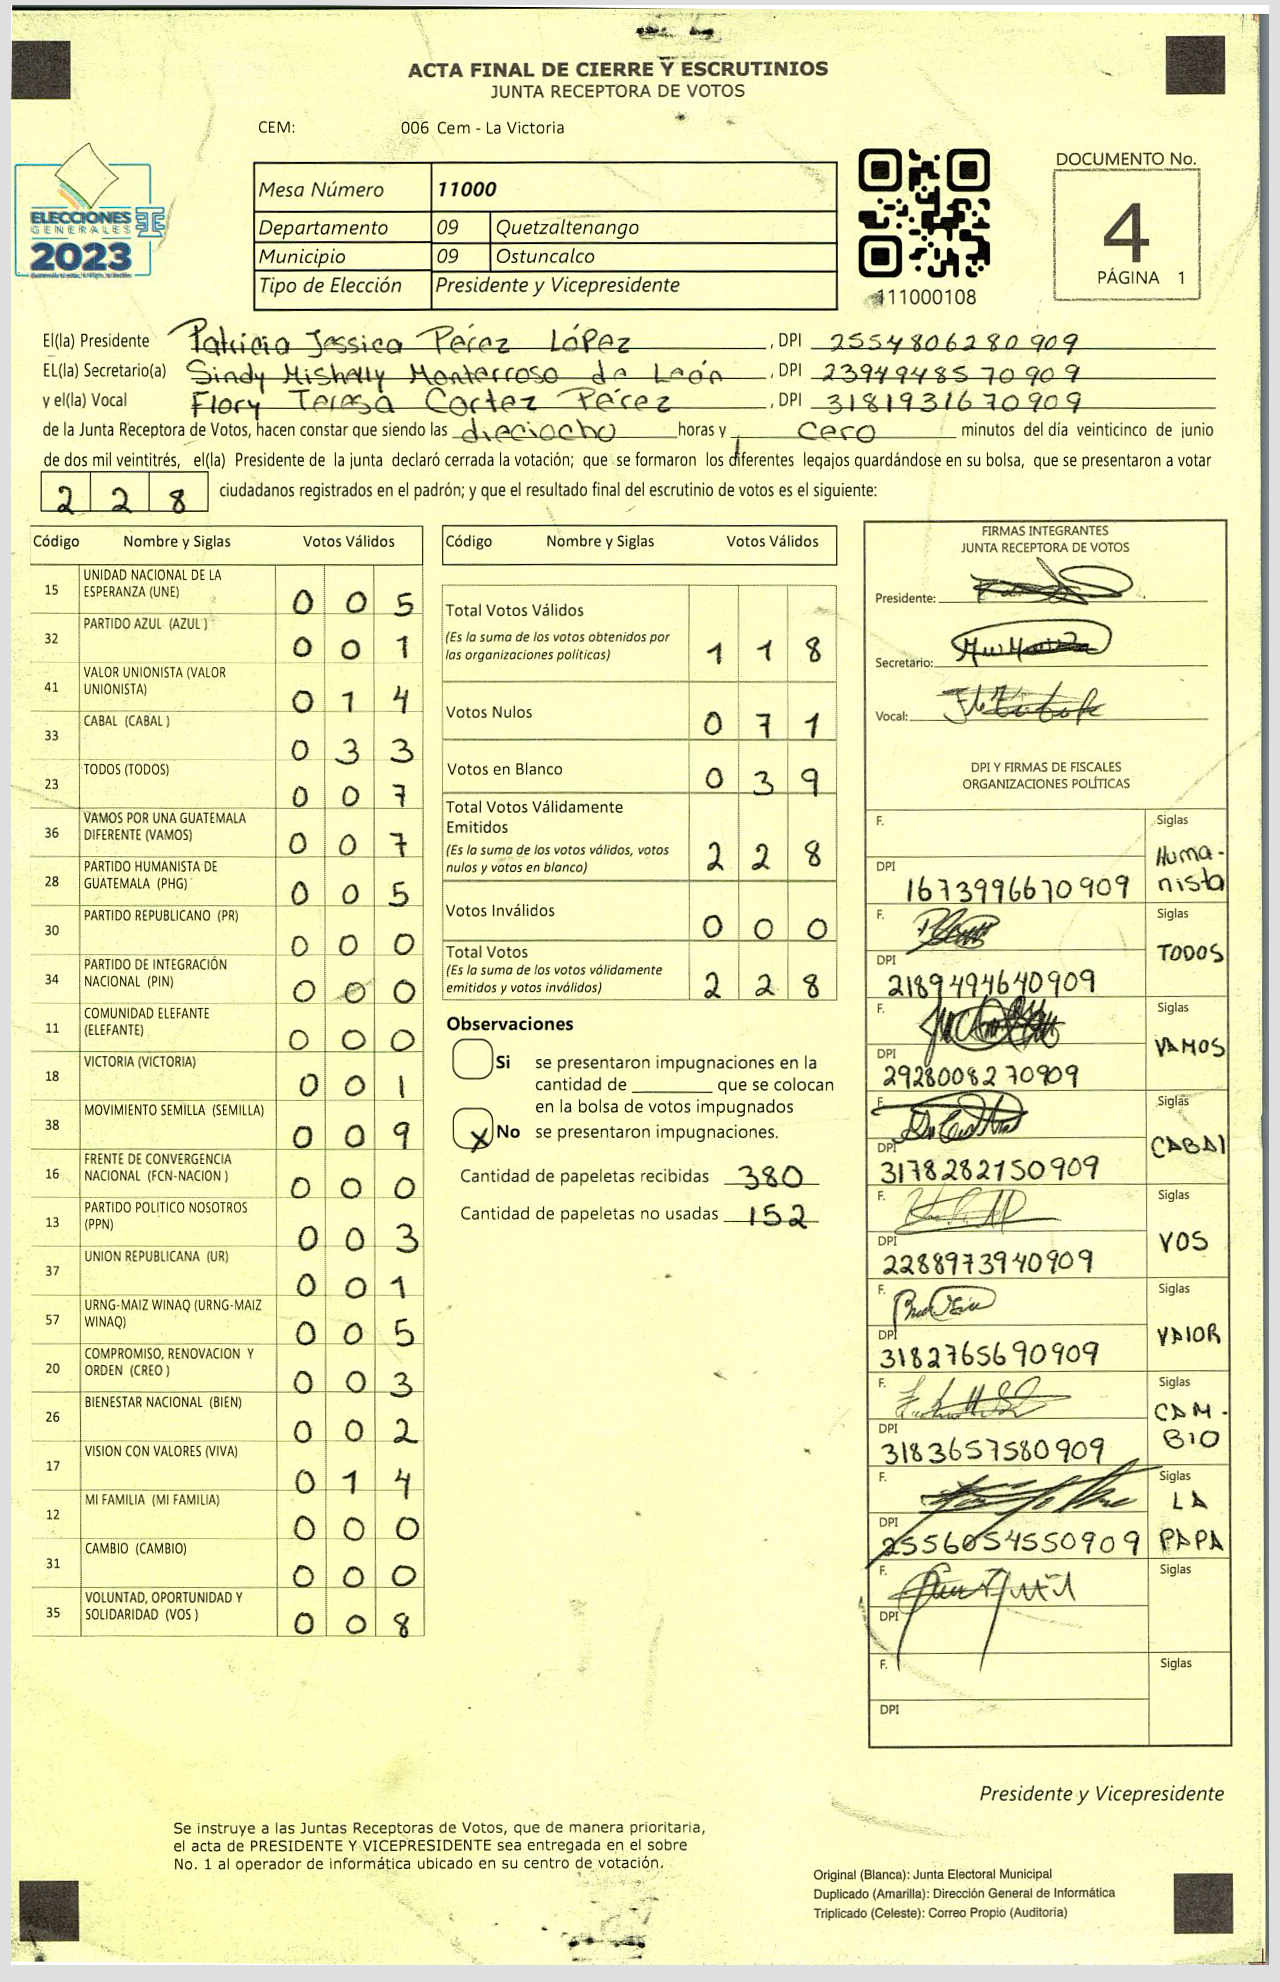 ACTA FINAL DE CIERRE Y ESCRUTINIOS
JUNTA RECEPTORA DE VOTOS
CEM: 006 Cem - La Victoria
ELECCIONES
GENERALES
2023
Mesa Número 11000
Departamento 09 Quetzaltenango
Municipio 09 Ostuncalco
Tipo de Elección Presidente y Vicepresidente
111000108
DOCUMENTO No.
4
PÁGINA 1
El(la) Presidente Patricia Jessica Pérez López , DPI 2554806280909
EL(la) Secretario(a) Sindy Mishelly Monterroso de León , DPI 2394948570909
y el(la) Vocal Flory Teresa Cortez Pérez , DPI 3181931670909
de la Junta Receptora de Votos, hacen constar que siendo las dieciocho horas y cero minutos del día veinticinco de junio
de dos mil veintitrés, el(la) Presidente de la junta declaró cerrada la votación; que se formaron los diferentes legajos guardándose en su bolsa, que se presentaron a votar
228 ciudadanos registrados en el padrón; y que el resultado final del escrutinio de votos es el siguiente:
Código Nombre y Siglas Votos Válidos
15 UNIDAD NACIONAL DE LA ESPERANZA (UNE) 0 0 5
32 PARTIDO AZUL (AZUL ) 0 0 1
41 VALOR UNIONISTA (VALOR UNIONISTA) 0 1 4
33 CABAL (CABAL ) 0 3 3
23 TODOS (TODOS) 0 0 7
36 VAMOS POR UNA GUATEMALA DIFERENTE (VAMOS) 0 0 7
28 PARTIDO HUMANISTA DE GUATEMALA (PHG) 0 0 5
30 PARTIDO REPUBLICANO (PR) 0 0 0
34 PARTIDO DE INTEGRACIÓN NACIONAL (PIN) 0 0 0
11 COMUNIDAD ELEFANTE (ELEFANTE) 0 0 0
18 VICTORIA (VICTORIA) 0 0 1
38 MOVIMIENTO SEMILLA (SEMILLA) 0 0 9
16 FRENTE DE CONVERGENCIA NACIONAL (FCN-NACION ) 0 0 0
13 PARTIDO POLITICO NOSOTROS (PPN) 0 0 3
37 UNION REPUBLICANA (UR) 0 0 1
57 URNG-MAIZ WINAQ (URNG-MAIZ WINAQ) 0 0 5
20 COMPROMISO, RENOVACION Y ORDEN (CREO ) 0 0 3
26 BIENESTAR NACIONAL (BIEN) 0 0 2
17 VISION CON VALORES (VIVA) 0 1 4
12 MI FAMILIA (MI FAMILIA) 0 0 0
31 CAMBIO (CAMBIO) 0 0 0
35 VOLUNTAD, OPORTUNIDAD Y SOLIDARIDAD (VOS ) 0 0 8
Código Nombre y Siglas Votos Válidos
Total Votos Válidos 1 1 8
(Es la suma de los votos obtenidos por
las organizaciones políticas)
Votos Nulos 0 7 1
Votos en Blanco 0 3 9
Total Votos Válidamente
Emitidos 2 2 8
(Es la suma de los votos válidos, votos
nulos y votos en blanco)
Votos Inválidos 0 0 0
Total Votos 2 2 8
(Es la suma de los votos válidamente
emitidos y votos inválidos)
Observaciones
Si se presentaron impugnaciones en la
cantidad de ________ que se colocan
en la bolsa de votos impugnados
X No se presentaron impugnaciones.
Cantidad de papeletas recibidas 380
Cantidad de papeletas no usadas 152
FIRMAS INTEGRANTES
JUNTA RECEPTORA DE VOTOS
Presidente:
Secretario:
Vocal:
DPI Y FIRMAS DE FISCALES
ORGANIZACIONES POLÍTICAS
F. Siglas
Huma-
nista
DPI 1673996670909
F. Siglas
TODOS
DPI 2189494640909
F. Siglas
VAMOS
DPI 2928008270909
F. Siglas
CABAl
DPI 3178282150909
F. Siglas
VOS
DPI 2288973940909
F. Siglas
VAlOR
DPI 3182765690909
F. Siglas
CAM-
BIO
DPI 3183657580909
F. Siglas
LA
PAPA
DPI 2556054550909
F. Siglas
DPI
F. Siglas
DPI
Presidente y Vicepresidente
Se instruye a las Juntas Receptoras de Votos, que de manera prioritaria,
el acta de PRESIDENTE Y VICEPRESIDENTE sea entregada en el sobre
No. 1 al operador de informática ubicado en su centro de votación.
Original (Blanca): Junta Electoral Municipal
Duplicado (Amarilla): Dirección General de Informática
Triplicado (Celeste): Correo Propio (Auditoría)